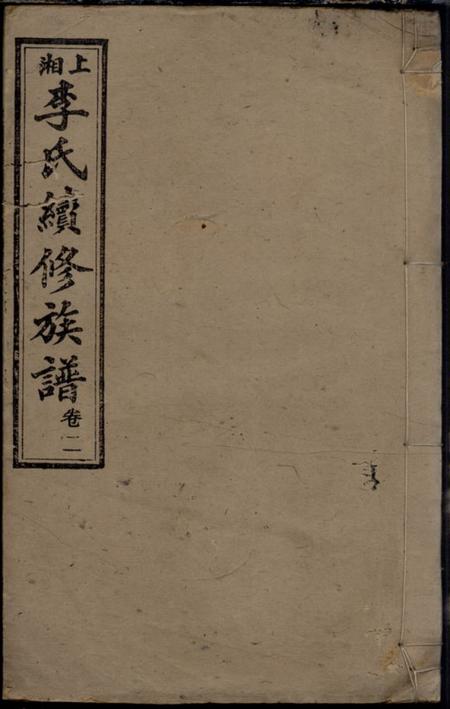 上湘
李氏續修族譜
卷二